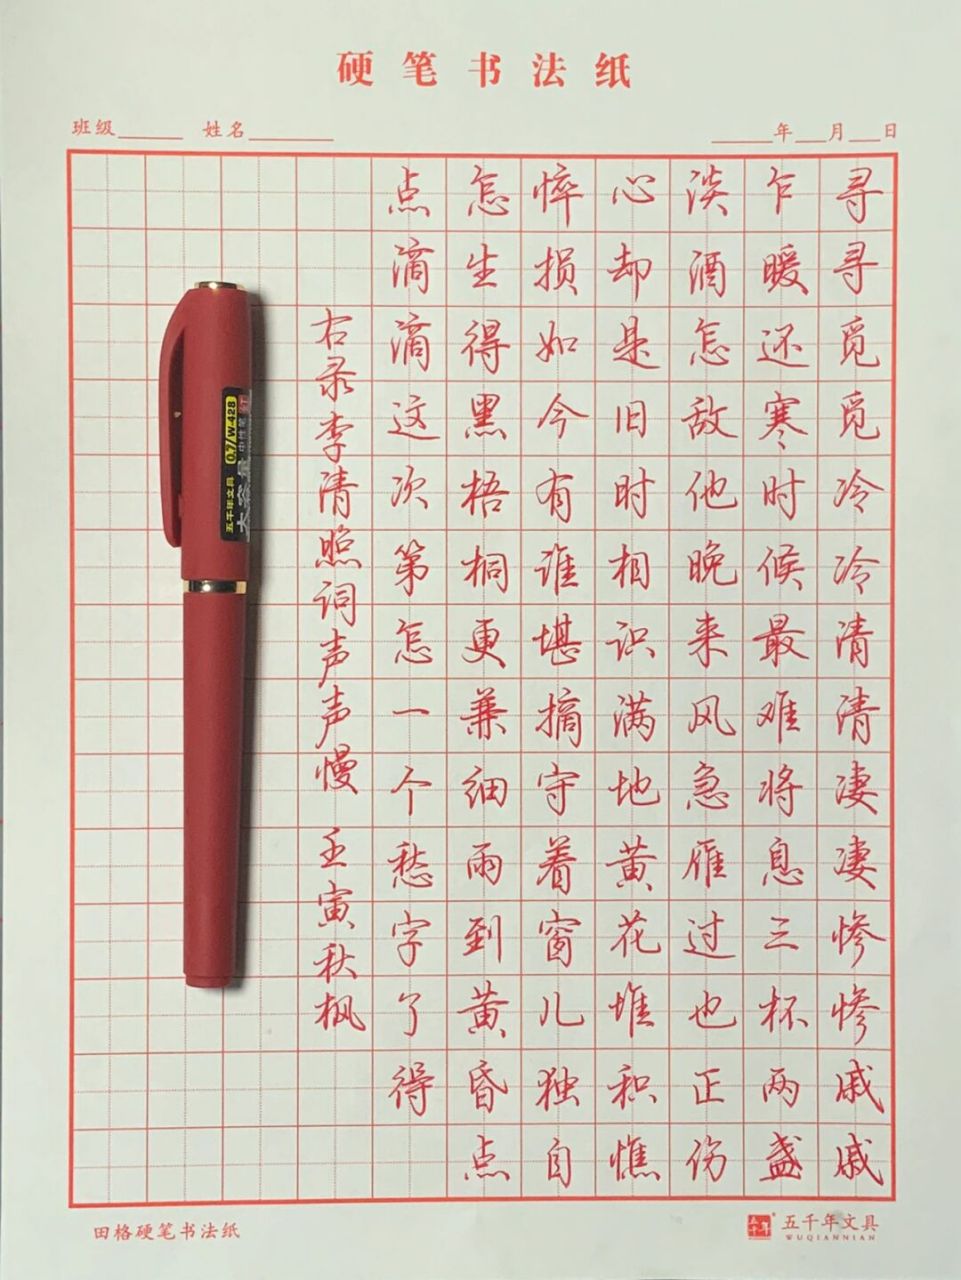 硬笔书法纸
班级 姓名 年 月 日
寻寻觅觅冷冷清清凄凄惨惨戚戚
乍暖还寒时候最难将息三杯两盏
淡酒怎敌他晚来风急雁过也正伤
心却是旧时相识满地黄花堆积憔
悴损如今有谁堪摘守着窗儿独自
怎生得黑梧桐更兼细雨到黄昏点
点滴滴这次第怎一个愁字了得
右录李清照词声声慢 壬寅秋枫
0.7/W-428
中性笔
五千年文具
大容量
田格硬笔书法纸
五千年
五千年文具
WUQIANNIAN